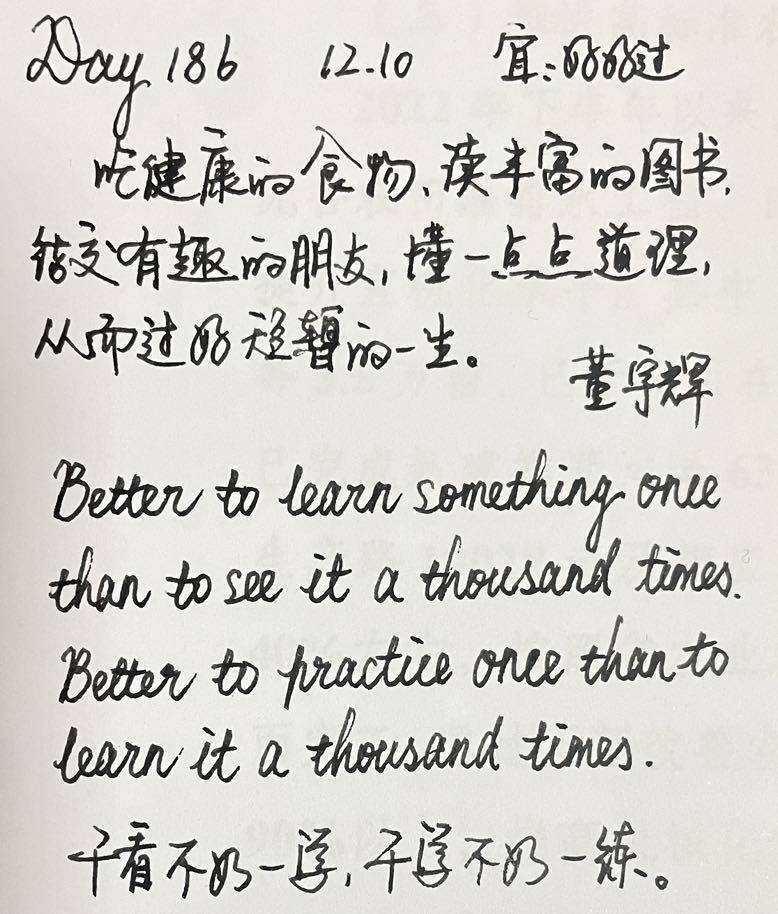 Day 186 12.10 宜:好好过
吃健康的食物、读丰富的图书,
结交有趣的朋友,懂一点点道理,
从而过好短暂的一生。
董宇辉
Better to learn something once
than to see it a thousand times.
Better to practice once than to
learn it a thousand times.
千看不如一学,千学不如一练。